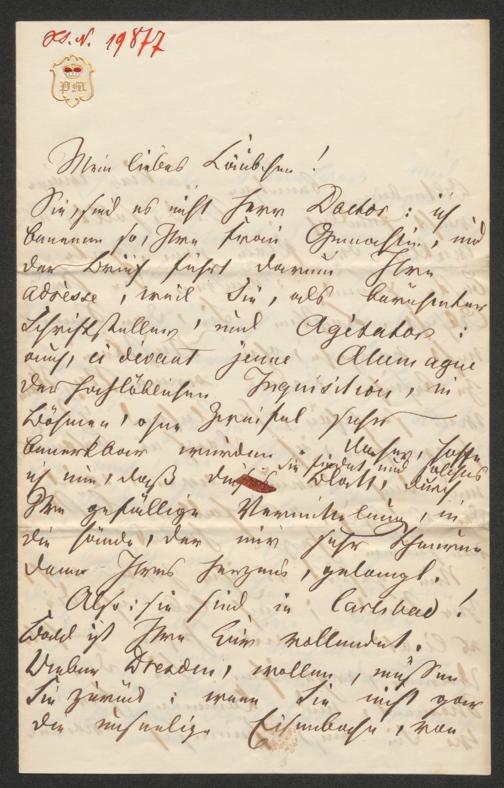 H. N. 19877
PM
Mein liebes Täubchen!
Sie, sind es nicht Herr Doctor: ich
so, Ihre Frau Gemahlin, und
der Brief führt darum Ihre
Adresse, weil Sie, als berühmter
Schriftsteller, und Agitator:
auch, ci devant jeune Alemagne
der hochlöblichen Inquisition, in
Böhmen, ohne Zweifel sehr
bemerkbar würden. Daher, hoffe
ich nun, daß dies Blatt, durch
Sie findet und solches
Ihre gefällige Vermittelung, in
die Hände, der mir sehr theuren
Dame Ihres Herzens, gelangt.
Also: sie sind in Carlsbad!
Bald ist Ihre Cur vollendet.
Ueber Dresden, wollen, müssen
Sie zurück: wenn Sie nicht gar
die unselige Eisenbahn, von